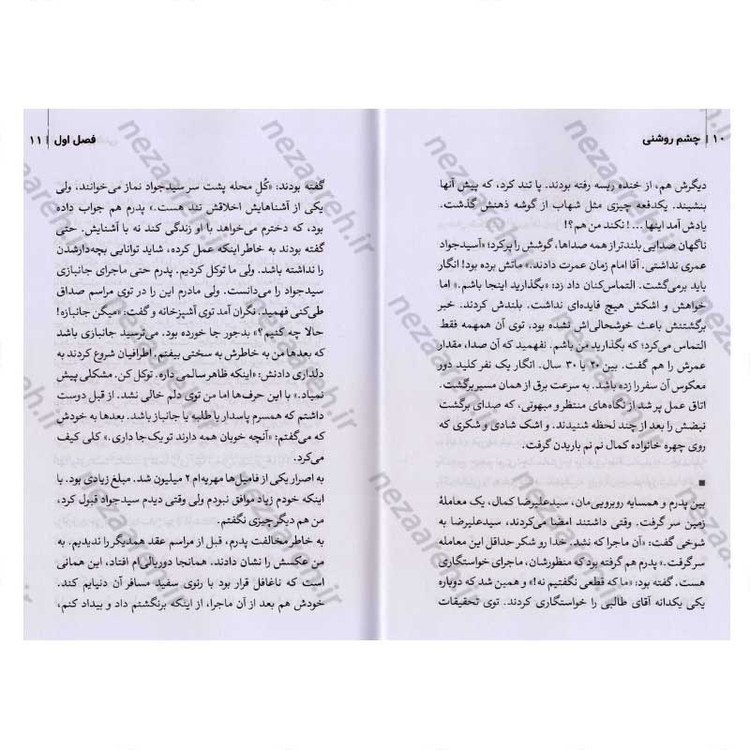 ۱۰ | چشم روشنی
دیگرش هم، از خنده ریسه رفته بودند. پا تند کرد، که پیش آنها
بنشیند. یکدفعه چیزی مثل شهاب از گوشه ذهنش گذشت.
یادش آمد اینها ...! نکند من هم؟!
ناگهان صدایی بلندتر از همه صداها، گوشش را پر کرد: «آسیدجواد
عمری نداشتی. آقا امام زمان عمرت دادند.» ماتش برده بود! انگار
باید برمی‌گشت. التماس‌کنان داد زد: «بگذارید اینجا باشم.» اما
خواهش و اشکش هیچ فایده‌ای نداشت. بلندش کردند. خبر
برگشتنش باعث خوشحالی‌اش نشده بود. توی آن همهمه فقط
التماس می‌کرد: «که بگذارید من باشم. نفهمید که آن صدا، مقدار
عمرش را هم گفت. بین ۲۰ یا ۳۰ سال. انگار یک نفر کلید دور
معکوس آن سفر را زده باشد. به سرعت برق از همان مسیر برگشت.
اتاق عمل پر شد از نگاه‌های منتظر و مبهوتی، که صدای برگشت
نبضش را بعد از چند لحظه شنیدند. و اشک شادی و شکری که
روی چهره خانواده کمال نم نم باریدن گرفت.
■
بین پدرم و همسایه روبرویی‌مان، سیدعلیرضا کمال، یک معاملهٔ
زمین سر گرفت. وقتی داشتند امضا می‌کردند، سیدعلیرضا به
شوخی گفت: «آن ماجرا که نشد. خدا رو شکر حداقل این معامله
سرگرفت.» پدرم هم گرفته بود که منظورشان، ماجرای خواستگاری
هست. گفته بود: «ما که قطعی نگفتیم نه!» و همین شد که دوباره
یکی یکدانه آقای طالبی را خواستگاری کردند. توی تحقیقات
فصل اول | ۱۱
گفته بودند: «کُلِ محله پشت سر سیدجواد نماز می‌خوانند. ولی
یکی از آشناهایش اخلاقش تند هست.» پدرم هم جواب داده
بود، که دخترم می‌خواهد با او زندگی کند نه با آشنایش. حتی
گفته بودند به خاطر اینکه عمل کرده، شاید توانایی بچه‌دارشدن
را نداشته باشد. ولی ما توکل کردیم. پدرم حتی ماجرای جانبازی
سیدجواد را می‌دانست. ولی مادرم این را توی مراسم صداق
طی‌کنی فهمید. نگران آمد توی آشپزخانه و گفت: «میگن جانبازه!
حالا چه کنیم؟» بدجور جا خورده بود. می‌ترسید جانبازی باشد
که بعدها من به خاطرش به سختی بیفتم. اطرافیان شروع کردند به
دلداری دادنش: «اینکه ظاهر سالمی داره. توکل کن. مشکلی پیش
نمیاد.» با این حرف‌ها اما من توی دلم خالی نشد. از قبل دوست
داشتم که همسرم پاسدار یا طلبه یا جانباز باشد. بعدها به خودش
که می‌گفتم: «آنچه خوبان همه دارند تو یک جا داری.» کلی کیف
می‌کرد.
به اصرار یکی از فامیل‌ها مهریه‌ام ۲ میلیون شد. مبلغ زیادی بود. با
اینکه خودم زیاد موافق نبودم ولی وقتی دیدم سیدجواد قبول کرد،
من هم دیگر چیزی نگفتم.
به خاطر مخالفت پدرم، قبل از مراسم عقد همدیگر را ندیدیم. به
من عکسش را نشان دادند. همانجا دوریالی‌ام افتاد، این همانی
است که ناغافل قرار بود با رنوی سفید مسافر آن دنیایم کند.
خودش هم بعد از آن ماجرا، از اینکه برنگشتم داد و بیداد کنم،
nezaareh.ir